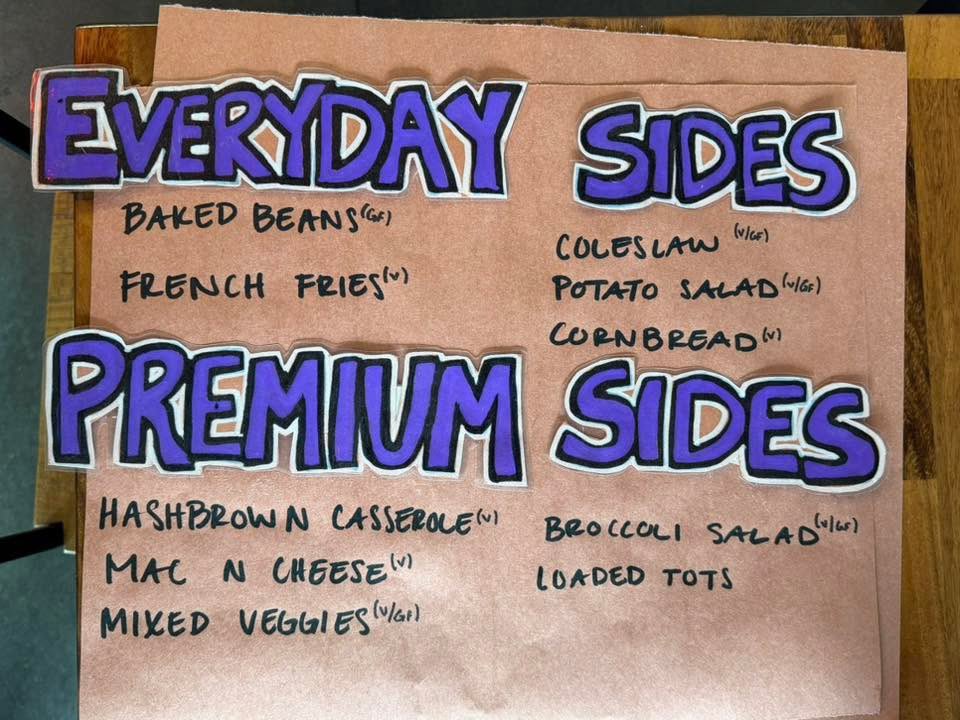 EVERYDAY SIDES
BAKED BEANS (GF)
FRENCH FRIES (V)
COLESLAW (V/GF)
POTATO SALAD (V/GF)
CORNBREAD (V)
PREMIUM SIDES
HASHBROWN CASSEROLE (V)
MAC N CHEESE (V)
MIXED VEGGIES (V/GF)
BROCCOLI SALAD (V/GF)
LOADED TOTS